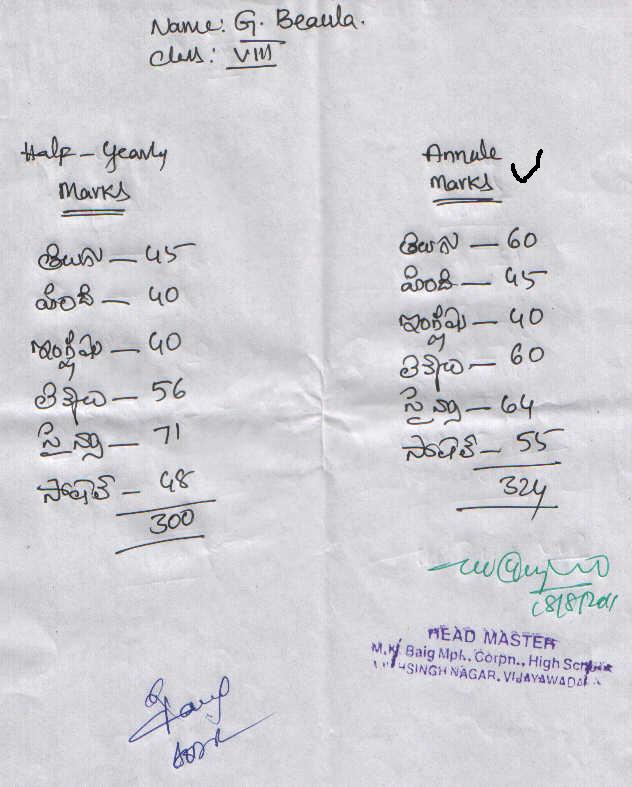 Name: G. Beaula.
Class: VIII
Half-Yearly
Marks
తెలుగు — 45
హింది — 40
ఇంగ్లీషు — 40
లెక్కలు — 56
సైన్సు — 71
సోషల్ — 48
300
Annule
Marks
తెలుగు — 60
హింది — 45
ఇంగ్లీషు — 40
లెక్కలు — 60
సైన్సు — 64
సోషల్ — 55
324
18/8/2011
HEAD MASTER
M.K. Baig Mpl. Corpn., High School
SINGH NAGAR, VIJAYAWADA